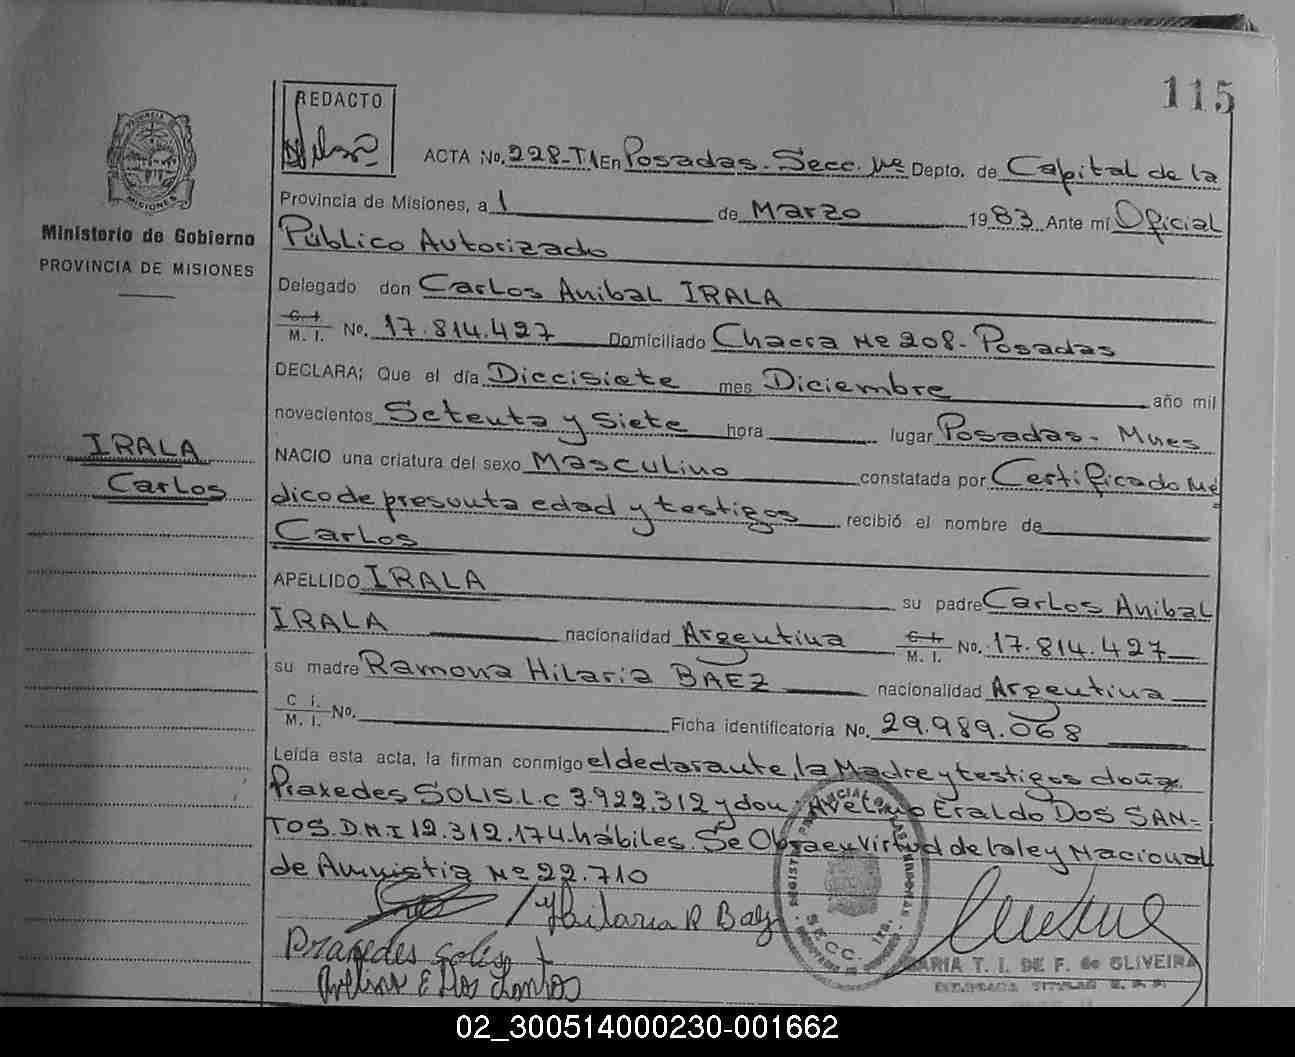 115
REDACTO
ACTA No. 228-T1 En Posadas. Secc. 1ra Depto. de Capital de la
Provincia de Misiones, a 1 de Marzo 1983 Ante mí Oficial
Público Autorizado
Delegado don Carlos Anibal IRALA
C. I. / M. I. No. 17.814.427 Domiciliado Chacra Nº 208- Posadas
DECLARA; Que el día Diecisiete mes Diciembre año mil
novecientos Setenta y Siete hora lugar Posadas- Mnes
NACIO una criatura del sexo Masculino constatada por Certificado Mé
dico de presunta edad y testigos recibió el nombre de
Carlos
APELLIDO IRALA su padre Carlos Anibal
IRALA nacionalidad Argentina C. I. / M. I. No. 17.814.427
su madre Ramona Hilaria BAEZ nacionalidad Argentina
C. I. / M. I. No. Ficha identificatoria No. 29.989.068
Leída esta acta, la firman conmigo el declarante, la Madre y testigos doña
Praxedes SOLIS. L.C 3.922.312 y don Avelino Eraldo DOS SAN=
TOS. D.N.I 12.312.174. hábiles. Se Obra en Virtud de la ley Nacional
de Amnistia Nº 22.710
Hilaria R Baez
Praxedes Solis
Avelino E Dos Santos
MARIA T. I. DE F. de OLIVEIRA
DELEGADA TITULAR
SECC. 1ra.
PROVINCIA DE
MISIONES
Ministerio de Gobierno
PROVINCIA DE MISIONES
IRALA
Carlos
02_300514000230-001662